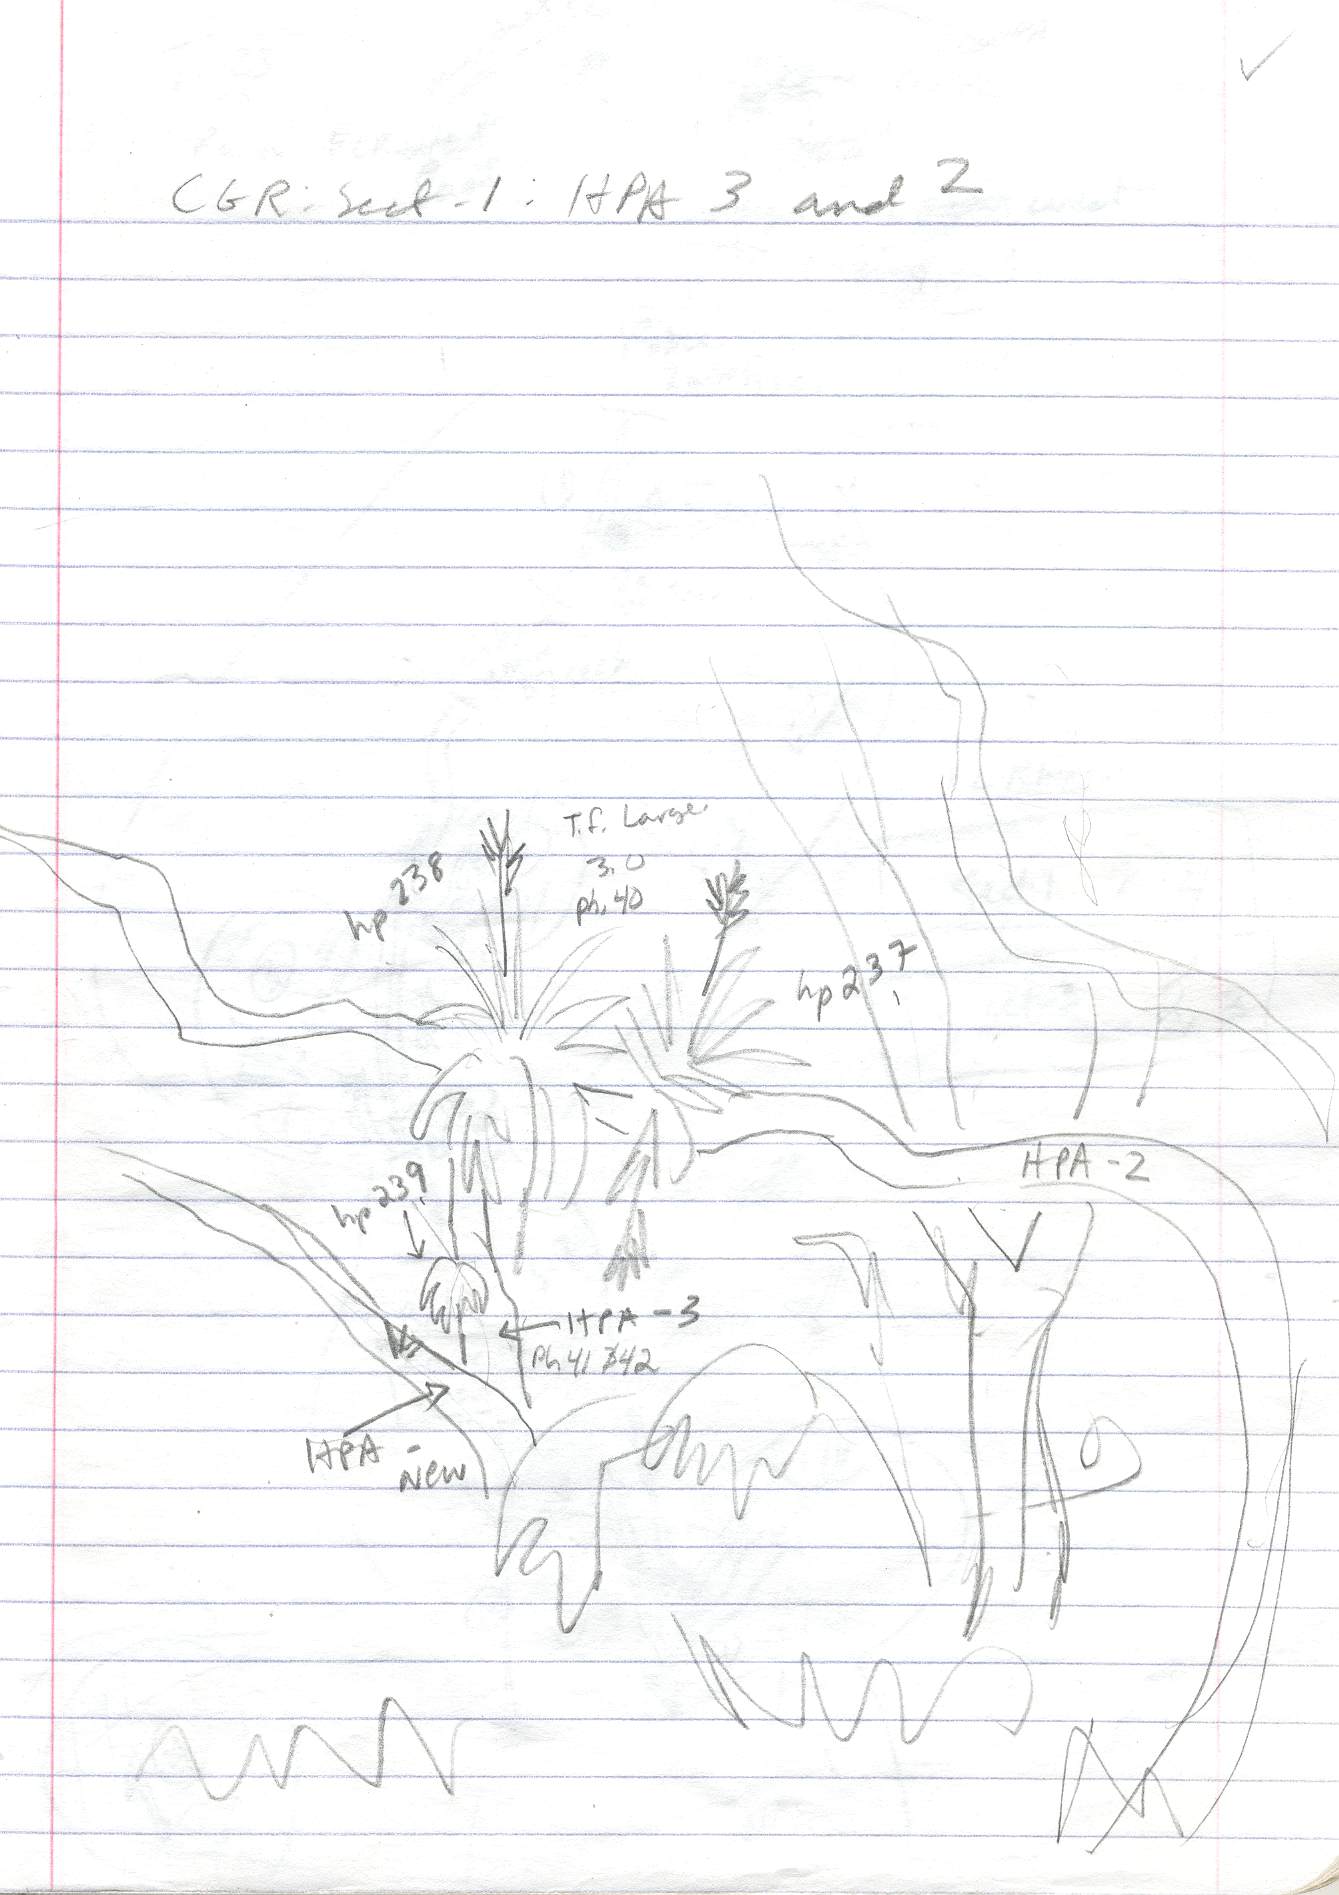 CGR: Sect-1: HPA 3 and 2
T.f. Large
3.0
ph. 40
hp 238
hp 237
HPA-2
hp 239
HPA-3
Ph 41 & 42
HPA-
New